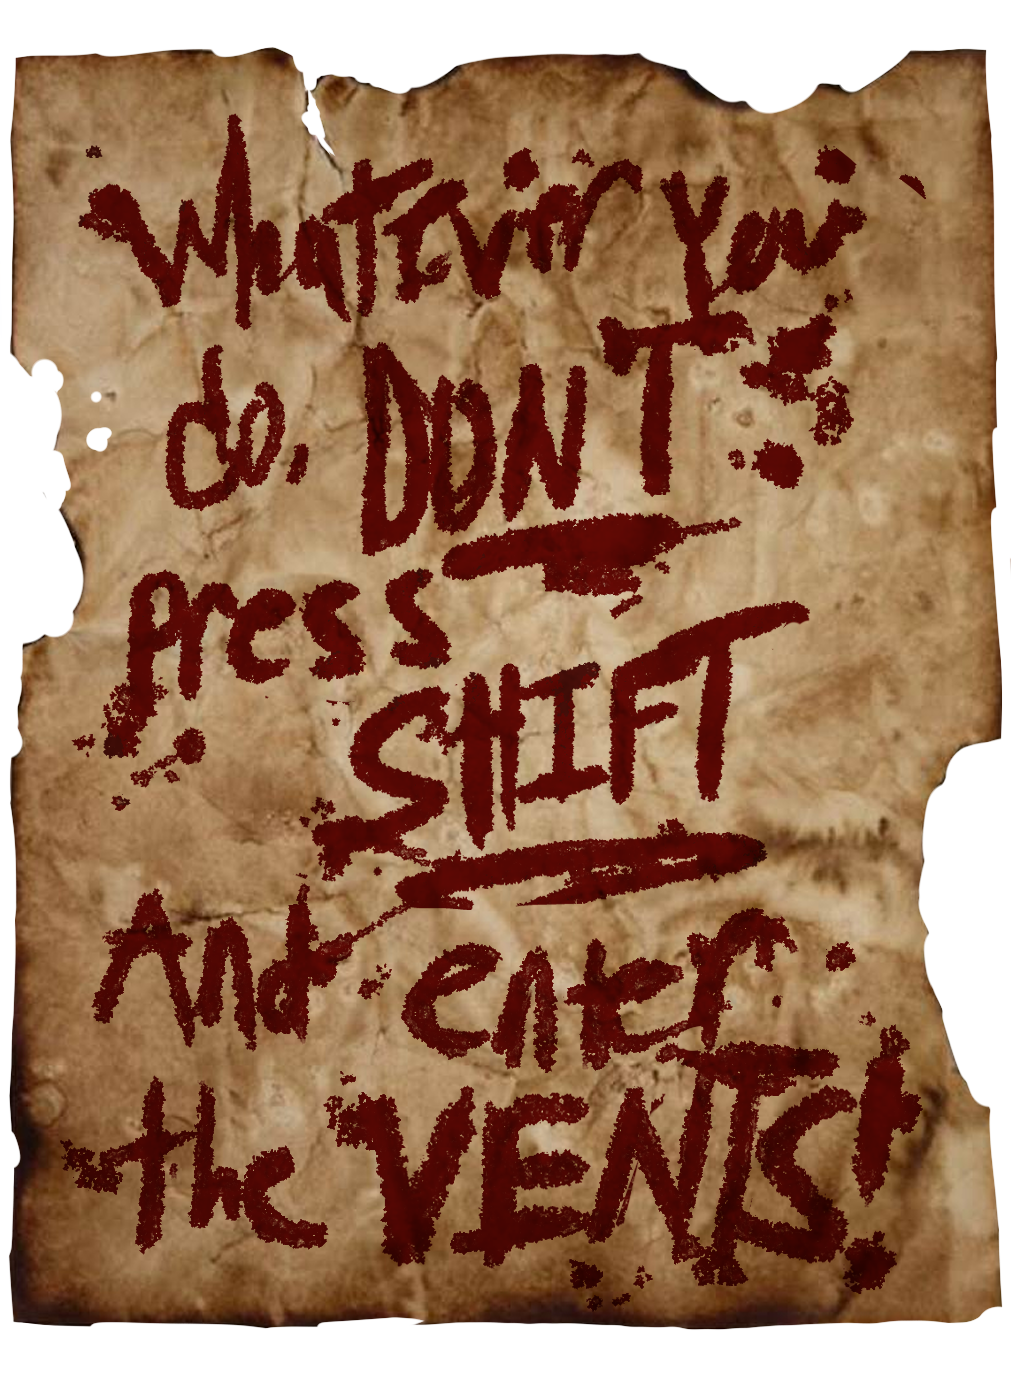 Whatever you
do, DON'T
press
SHIFT
And enter
the VENTS!